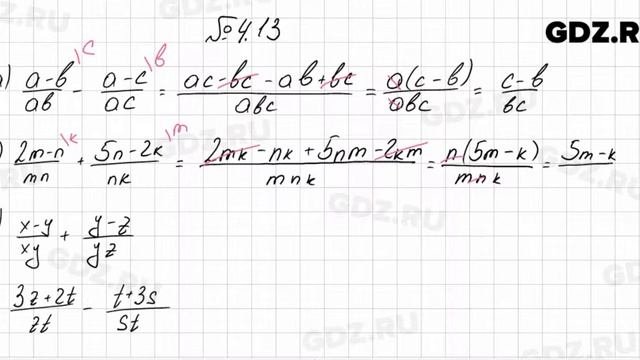 № 4.13
GDZ.R
) (a-b)/ab \c - (a-c)/ac \b = (ac-bc-ab+bc)/abc = a(c-b)/abc = (c-b)/bc
) (2m-n)/mn \k + (5n-2k)/nk \m = (2mk-nk+5nm-2km)/mnk = n(5m-k)/mnk = 5m-k
) (x-y)/xy + (y-z)/yz
(3z+2t)/zt - (t+3s)/st
GDZ.RU